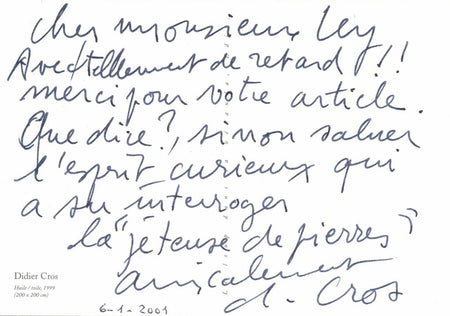 Cher monsieur Ley
Avec tellement de retard !!
merci pour votre article.
Que dire ?, sinon saluer
l'esprit curieux qui
a su interroger
la "jeteuse de pierres"
amicalement
d. Cros
Didier Cros
Huile / toile, 1999
(200 x 200 cm)
6-1-2001